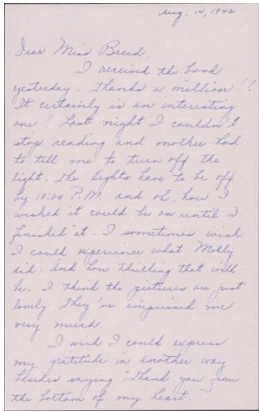 Aug. 14, 1942
Dear Miss Breed,
I received the book
yesterday. Thanks a million!!
It certainly is an interesting
one! Last night I couldn't
stop reading and mother had
to tell me to turn off the
light. The lights have to be off
by 10:00 P.M. and oh, how I
wished it could be on until I
finished it. I sometimes wish
I could experience what Molly
did. And how thrilling that will
be. I think the pictures are just
lovely. They've impressed me
very much.
I wish I could express
my gratitude in another way
besides saying "thank you from
the bottom of my heart."